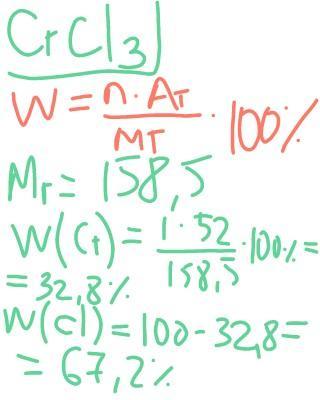 CrCl3
W = n · Ar / Mr · 100%
Mr = 158,5
W(Cr) = 1 · 52 / 158,5 · 100% =
= 32,8%
W(Cl) = 100 - 32,8 =
= 67,2%